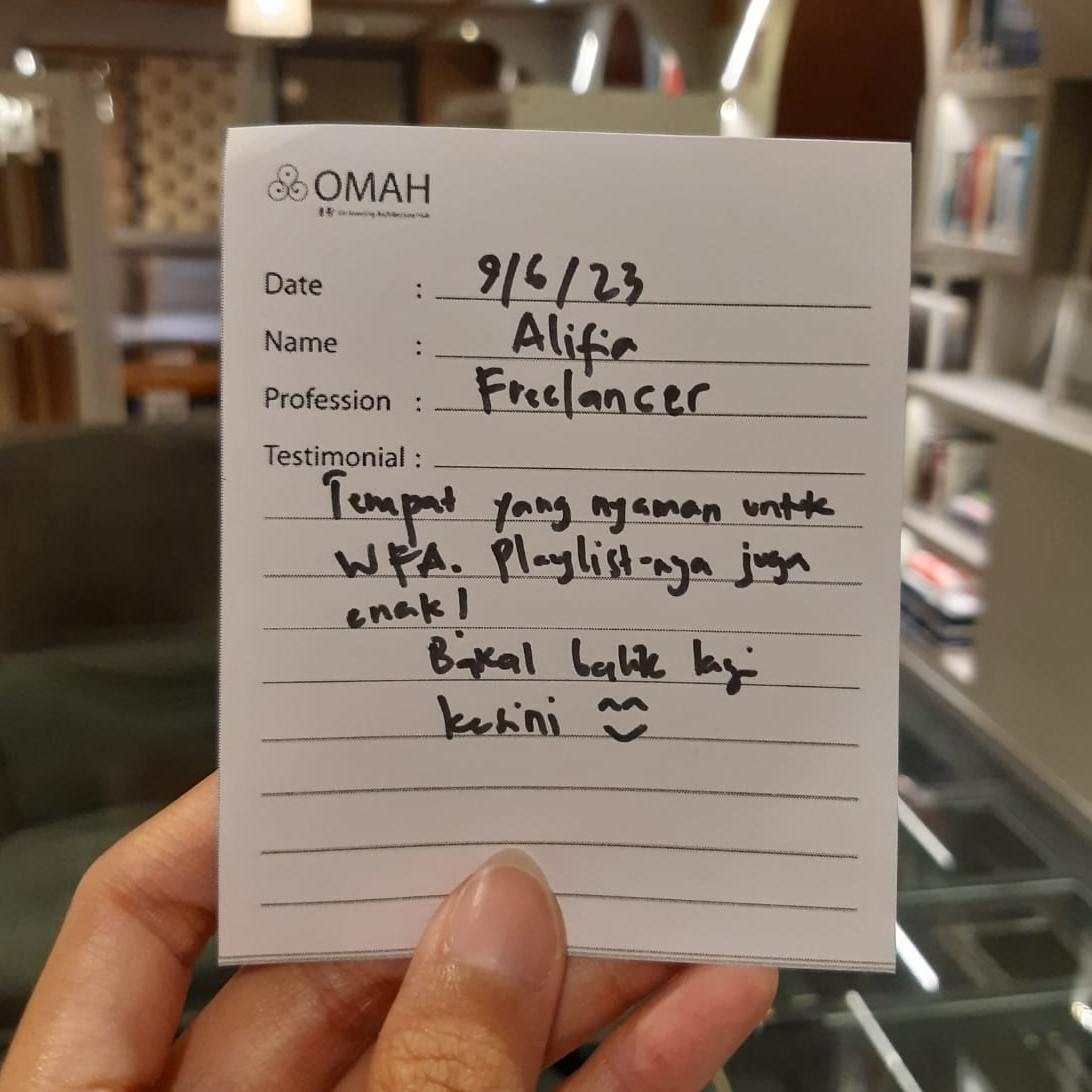 OMAH
Date : 9/6/23
Name : Alifia
Profession : Freelancer
Testimonial :
Tempat yang nyaman untuk
WFA. Playlist-nya juga
enak!
Bakal balik lagi
kesini